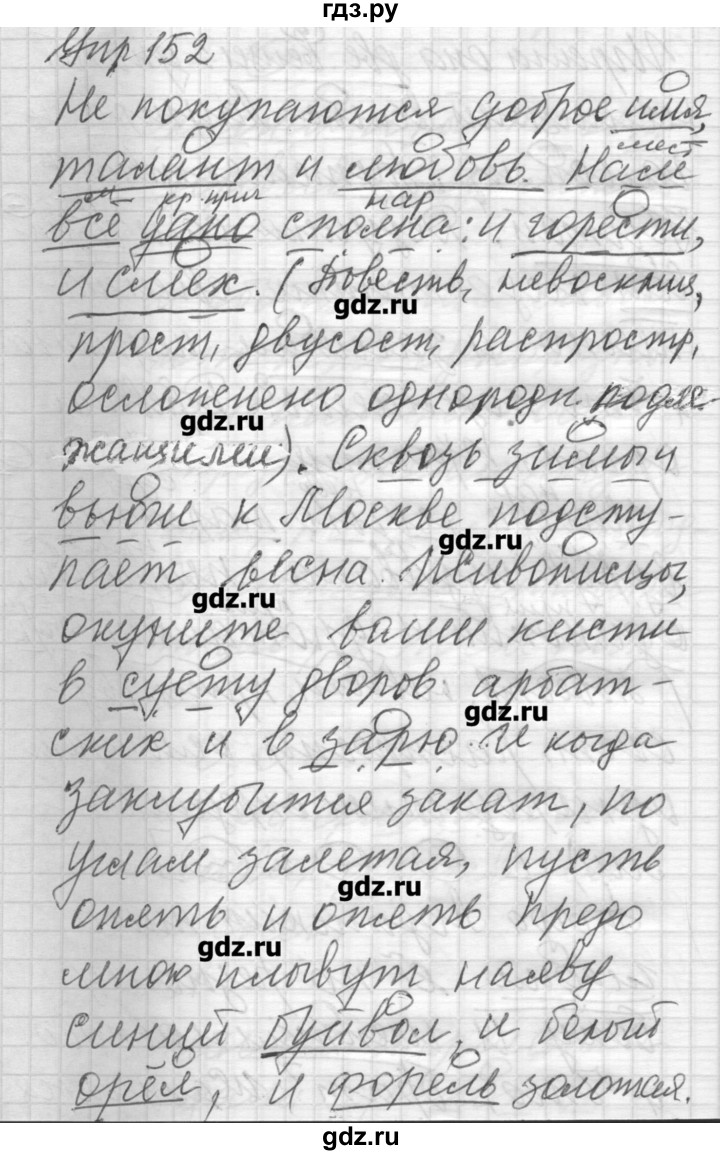 гдз.ру
Упр 152
Не покупаются доброе имя,
талант и любовь. Нам
мест
м. кр. прил нар
всё дано сполна: и горести,
и смех. (Повеств, невосклиц,
gdz.ru
прост, двусост, распростр,
осложенено однородн. подле-
gdz.ru
жащими). Сквозь зимы и
вьюги к Москве подсту-
gdz.ru
пает весна. Живописцы,
gdz.ru
окуните ваши кисти
в суету дворов арбат-
gdz.ru
ских и в зарю. И когда
заклубится закат, по
углам залетая, пусть
gdz.ru
опять и опять предо
gdz.ru
мною плывут наяву
синий буйвол, и белый
орёл, и форель золотая.
gdz.ru